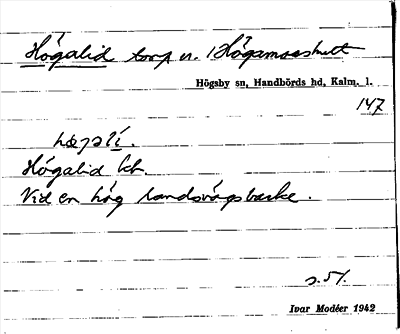 Högalid torp u. Högamoashult
Högsby sn, Handbörds hd, Kalm. l.
147
Högalid kb.
Vid en hög landsvägsbacke.
s. 51
Ivar Modéer 1942